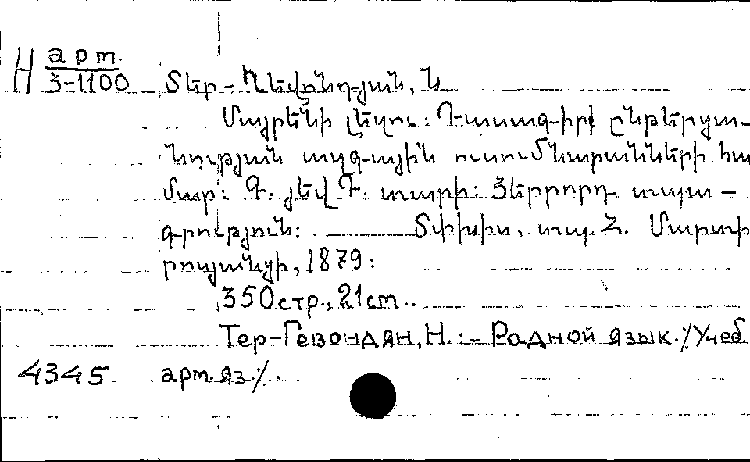 арт.
H 3-1100 Տեր-Ղևոնդյան, Ն
Մայրենի լեզու: Դասագիրք ընթերցա-
նության ազգային ուսումնարանների հա
մար: Գ. յեվ Դ. տարի: Յերրորդ տպա-
գրություն: Տփխիս, տպ. Հ. Մարտի
րոսյանցի, 1879:
350стр., 21cm..
Тер-Гевондян, Н. :- Родной язык./Учеб
4345 арм. яз/.